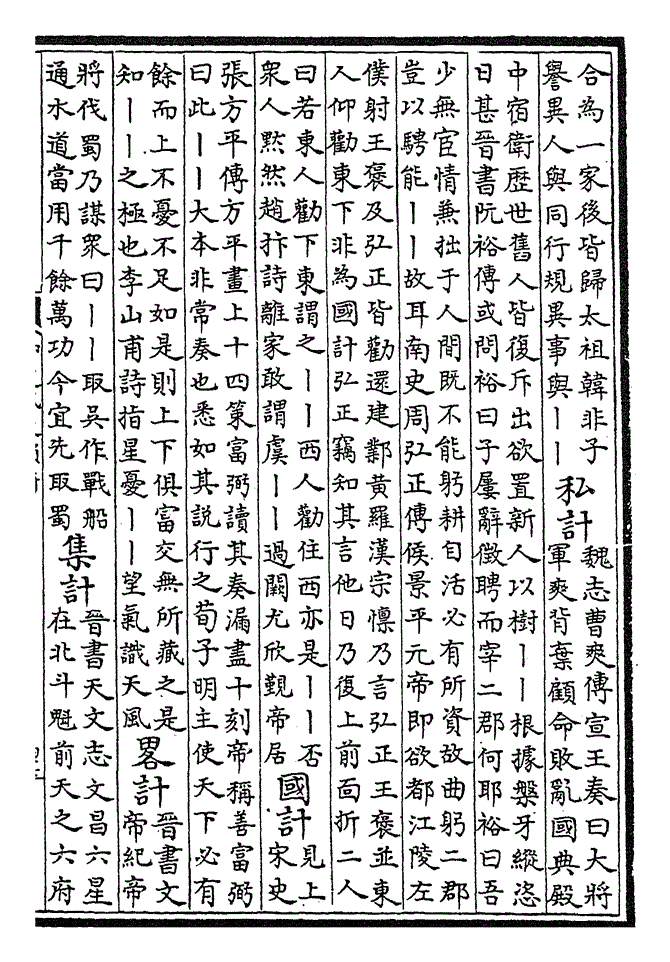 合為一家後皆歸太祖韓非子
譽異人與同行規異事與丨丨
私計
魏志曹爽傳宣王奏曰大將
軍爽背棄顧命敗亂國典殿
中宿衛歷世舊人皆復斥出欲置新人以樹丨丨根據槃牙縱恣
日甚晉書阮裕傳或問裕曰子屢辭徵聘而宰二郡何耶裕曰吾
少無宦情兼拙于人間既不能躬耕自活必有所資故曲躬二郡
豈以騁能丨丨故耳南史周弘正傳侯景平元帝即欲都江陵左
僕射王褒及弘正皆勸還建鄴黃羅漢宗懍乃言弘正王褒並東
人仰勸東下非為國計弘正竊知其言他日乃復上前面折二人
曰若東人勸下東謂之丨丨西人勸住西亦是丨丨否
衆人黙然趙抃詩離家敢謂虞丨丨過闕尤欣覲帝居
國計
見上
宋史
張方平傳方平畫上十四策富弼讀其奏漏盡十刻帝稱善富弼
曰此丨丨大本非常奏也悉如其說行之荀子明主使天下必有
餘而上不憂不足如是則上下俱富交無所藏之是
知丨丨之極也李山甫詩指星憂丨丨望氣識天風
畧計
晉書文
帝紀帝
將伐蜀乃謀衆曰丨丨取吳作戰船
通水道當用千餘萬功今宜先取蜀
集計
晉書天文志文昌六星
在北斗魁前天之六府